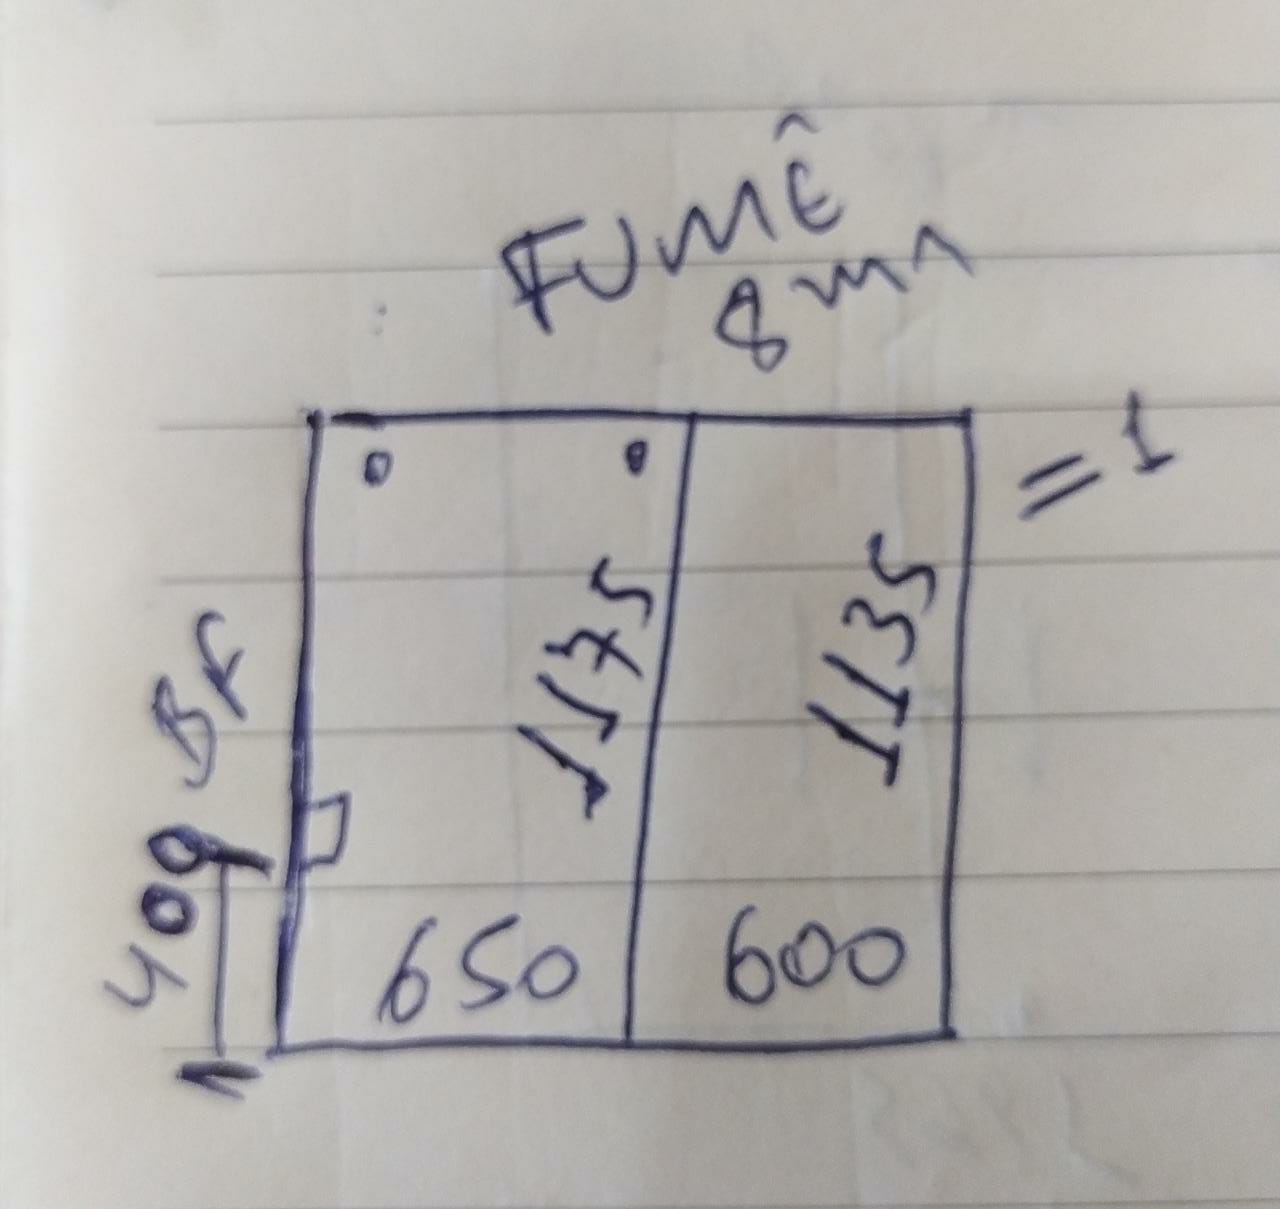 FUMÊ
8mm
=1
1175
1135
400 BF
650
600